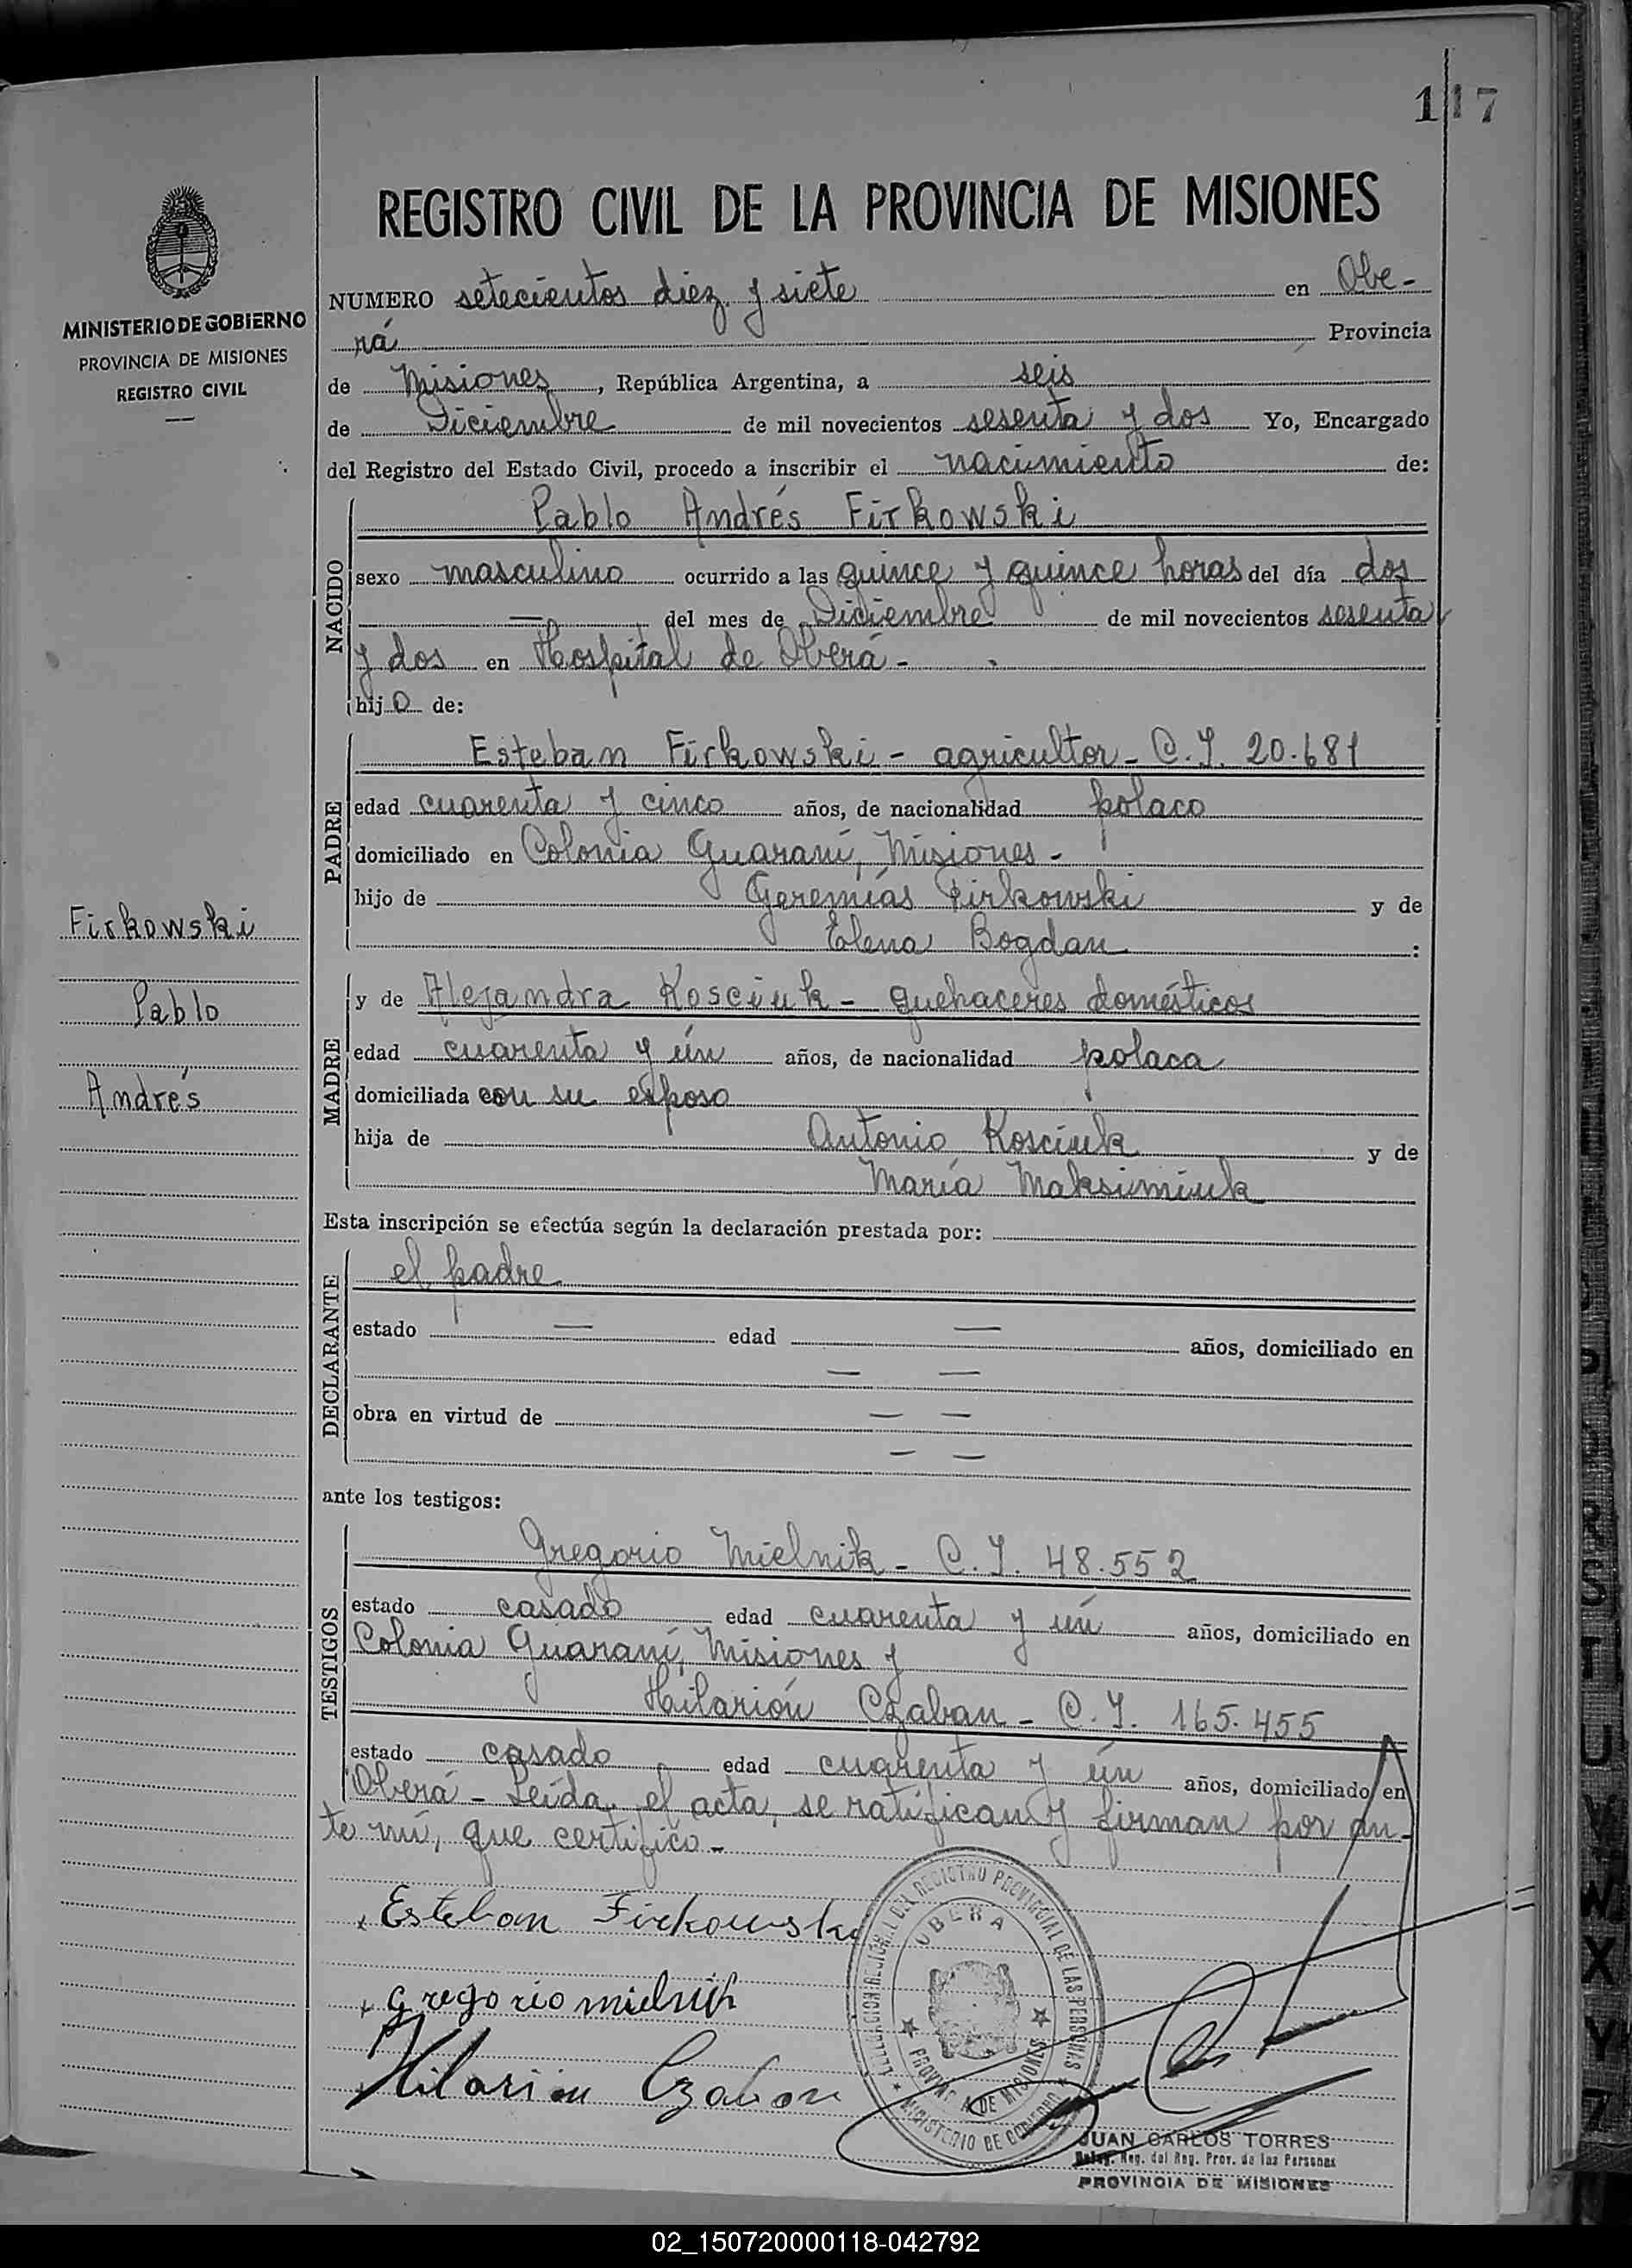 117
REGISTRO CIVIL DE LA PROVINCIA DE MISIONES
MINISTERIO DE GOBIERNO
PROVINCIA DE MISIONES
REGISTRO CIVIL
NUMERO setecientos diez y siete en Obe-
rá Provincia
de Misiones, República Argentina, a seis
de Diciembre de mil novecientos sesenta y dos Yo, Encargado
del Registro del Estado Civil, procedo a inscribir el nacimiento de:
NACIDO
Pablo Andrés Firkowski
sexo masculino ocurrido a las quince y quince horas del día dos
— del mes de Diciembre de mil novecientos sesenta
y dos en Hospital de Oberá -
hijo de:
PADRE
Esteban Firkowski - agricultor - C.I. 20.681
edad cuarenta y cinco años, de nacionalidad polaco
domiciliado en Colonia Guaraní, Misiones -
hijo de Geremías Firkowski y de
Elena Bogdan :
Firkowski
Pablo
Andrés
MADRE
y de Alejandra Kosciuk - quehaceres domésticos
edad cuarenta y ún años, de nacionalidad polaca
domiciliada con su esposo
hija de Antonio Kosciuk y de
María Maksimiuk
Esta inscripción se efectúa según la declaración prestada por:
DECLARANTE
el padre
estado — edad — años, domiciliado en
— —
obra en virtud de — —
— —
ante los testigos:
TESTIGOS
Gregorio Mielnik - C.I. 48.552
estado casado edad cuarenta y ún años, domiciliado en
Colonia Guaraní, Misiones y
Hilarión Czaban - C.I. 165.455
estado casado edad cuarenta y ún años, domiciliado en
Oberá - Leída el acta, se ratifican y firman por an-
te mí, que certifico -
Esteban Firkowski
Gregorio mielnik
Hilarion Czaban
DEL REGISTRO PROVINCIAL DE LAS PERSONAS
OBERA
PROVINCIA DE MISIONES
MINISTERIO DE GOBIERNO
JUAN CARLOS TORRES
Reg. del Reg. Prov. de las Personas
PROVINCIA DE MISIONES
S
T
U
V
W
X
Y
Z
02_150720000118-042792